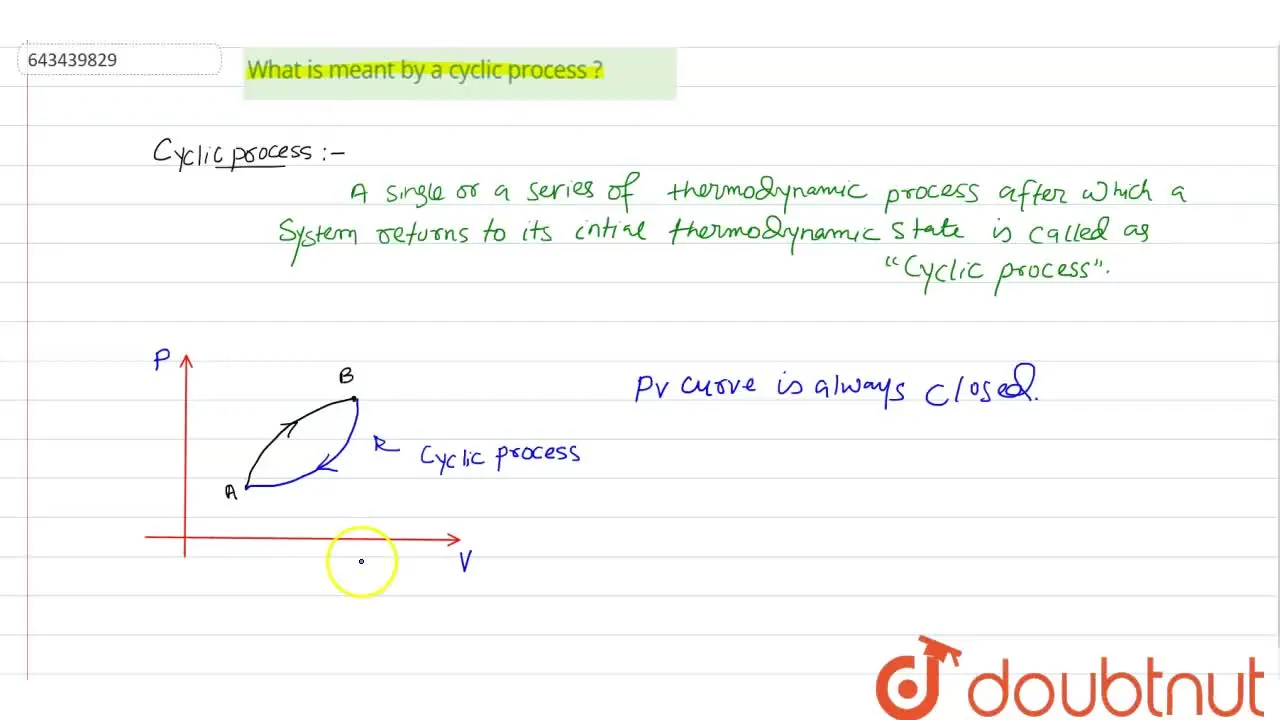 643439829
What is meant by a cyclic process ?
Cyclic process :-
A single or a series of thermodynamic process after which a
System returns to its intial thermodynamic state is called as
"Cyclic process".
P
B
PV curve is always closed.
Cyclic process
A
V
doubtnut